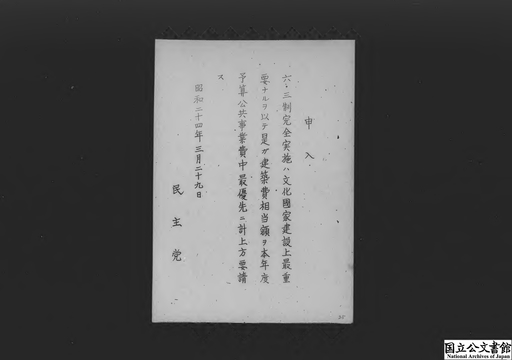 申入
六・三制完全実施ハ文化國家建設上最重
要ナルヲ以テ是ガ建築費相当額ヲ本年度
予算公共事業費中最優先ニ計上方要請
ス
昭和二十四年三月二十九日
民主党
国立公文書館
National Archives of Japan